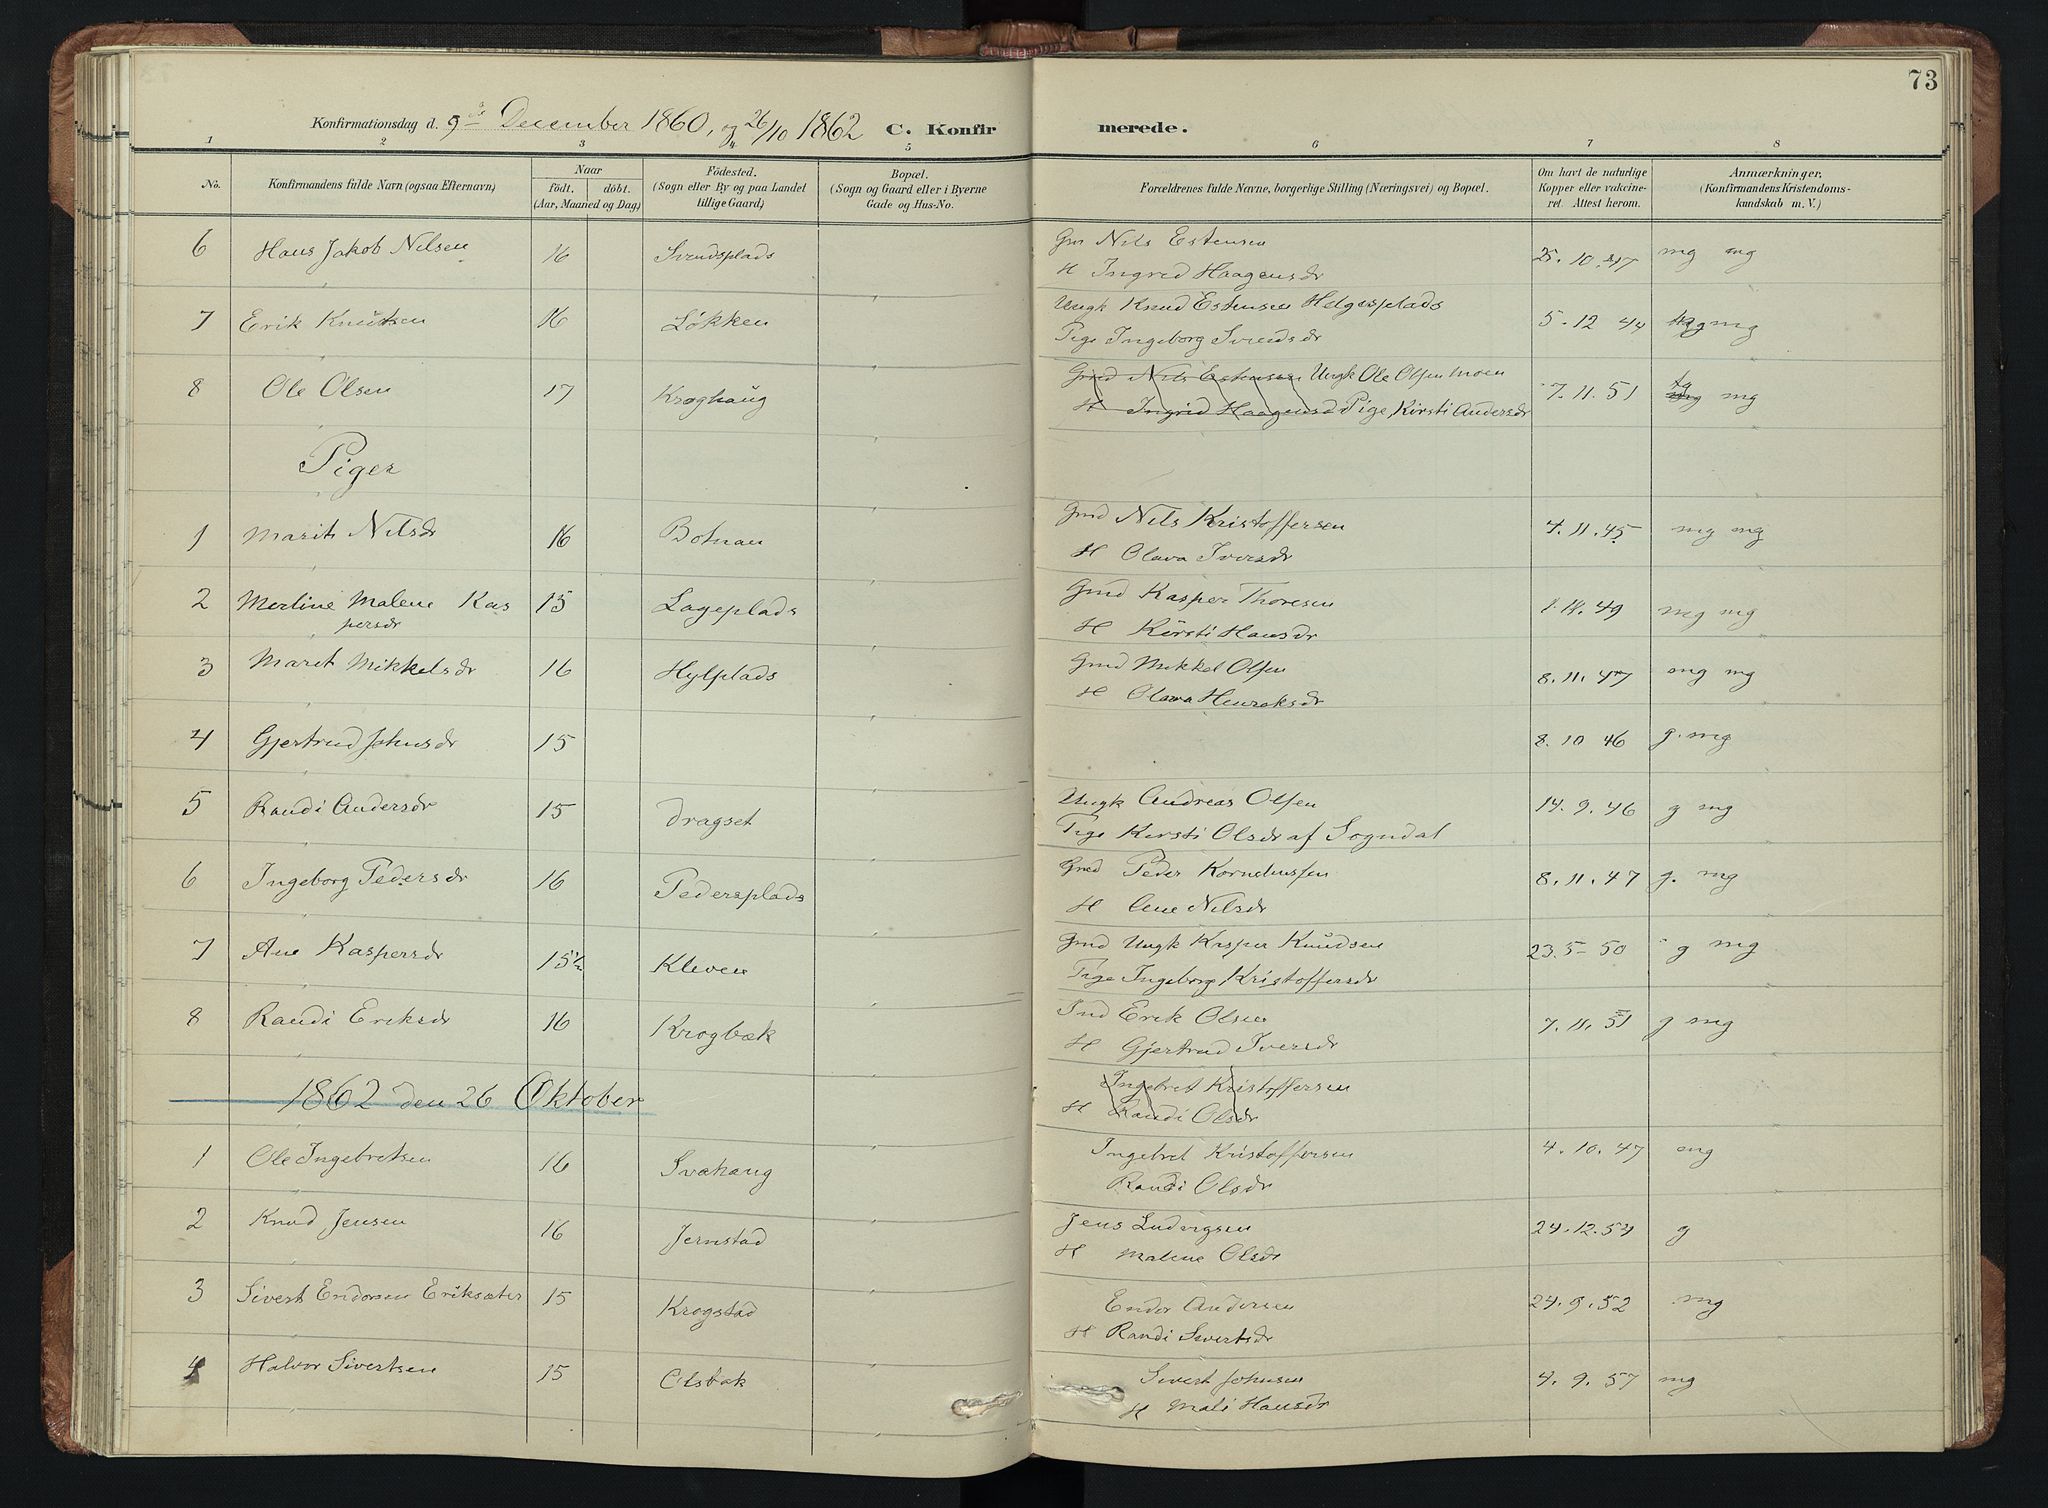 73
Konfirmationsdag d. 9de December 1860, og 26/10 1862 C. Konfirmerede.
1 2 3 4 5 6 7 8
No. Konfirmandens fulde Navn (ogsaa Efternavn) Naar född. döbt. (Aar, Maaned og Dag) Födested. (Sogn eller By og paa Landet tillige Gaard) Bopæl. (Sogn og Gaard eller i Byerne Gade og Hus-No. Forældrenes fulde Navne, borgerlige Stilling (Næringsvei) og Bopæl. Om havt de naturlige Kopper eller vakcineret. Attest herom. Anmærkninger, (Konfirmandens Kristendomskundskab m. V.)
6 Hans Jakob Nilsen 16 Svendsplads Gm Nils Estensen 25. 10. 47 mg mg
H Ingrid Haagensdr
7 Erik Knutsen 16 Løkken Ungk Knud Estensen Helgesplads 5. 12 44 mg
Pige Ingeborg Svendsdr
8 Ole Olsen 17 Kroghaug Gmd Nils Estensen Ungk Ole Olsen Moen 7. 11. 51 tg mg
H Ingrid Haagensd Pige Kirsti Andersdr
Piger
1 Marit Nilsdr 16 Botnan Gmd Nils Kristoffersen 4. 11. 45 mg mg
H Olava Iversdr
2 Merline Malene Kaspersdr 15 Lageplads Gmd Kasper Thoresen 1. 11. 49 mg mg
H Kirsti Hansdr
3 Marit Mikkelsdr 16 Hylplads Gmd Mikkel Olsen 8. 11. 47 mg mg
H Olava Henriksdr
4 Gjertrud Johnsdr 15 8. 10 46 g. mg
5 Randi Andersdr 15 Dragset Ungk Andreas Olsen 14. 9. 46 g mg
Pige Kirsti Olsdr af Sogndal
6 Ingeborg Pedersdr 16 Pedersplads Gmd Peder Korneliussen 8. 11. 47 g. mg
H Ane Nilsdr
7 Ane Kaspersdr 15½ Kleven Gmd Ungk Kasper Knudsen 23. 5 - 50 g mg
Pige Ingeborg Kristoffersdr
8 Randi Eriksdr 16 Krogbæk Ind Erik Olsen 7. 11. 51 g mg
H Gjertrud Iversdr
1862 den 26 Oktober Ingebret Kristoffersen
H Randi Olsdr
1 Ole Ingebretsen 16 Svæhaug Ingebret Kristoffersen 4. 10. 47 mg
Randi Olsdr
2 Knud Jensen 16 Jernstad Jens Ludvigsen 24. 12. 54 g
H Malene Olsdr
3 Sivert Endersen Eriksæter 15 Krogstad Ender Andersen 24. 9. 52 mg
H Randi Sivertsdr
4 Halvor Sivertsen 15 Olsbak Sivert Johnsen 4. 9. 57 mg
H Mali Hansdr